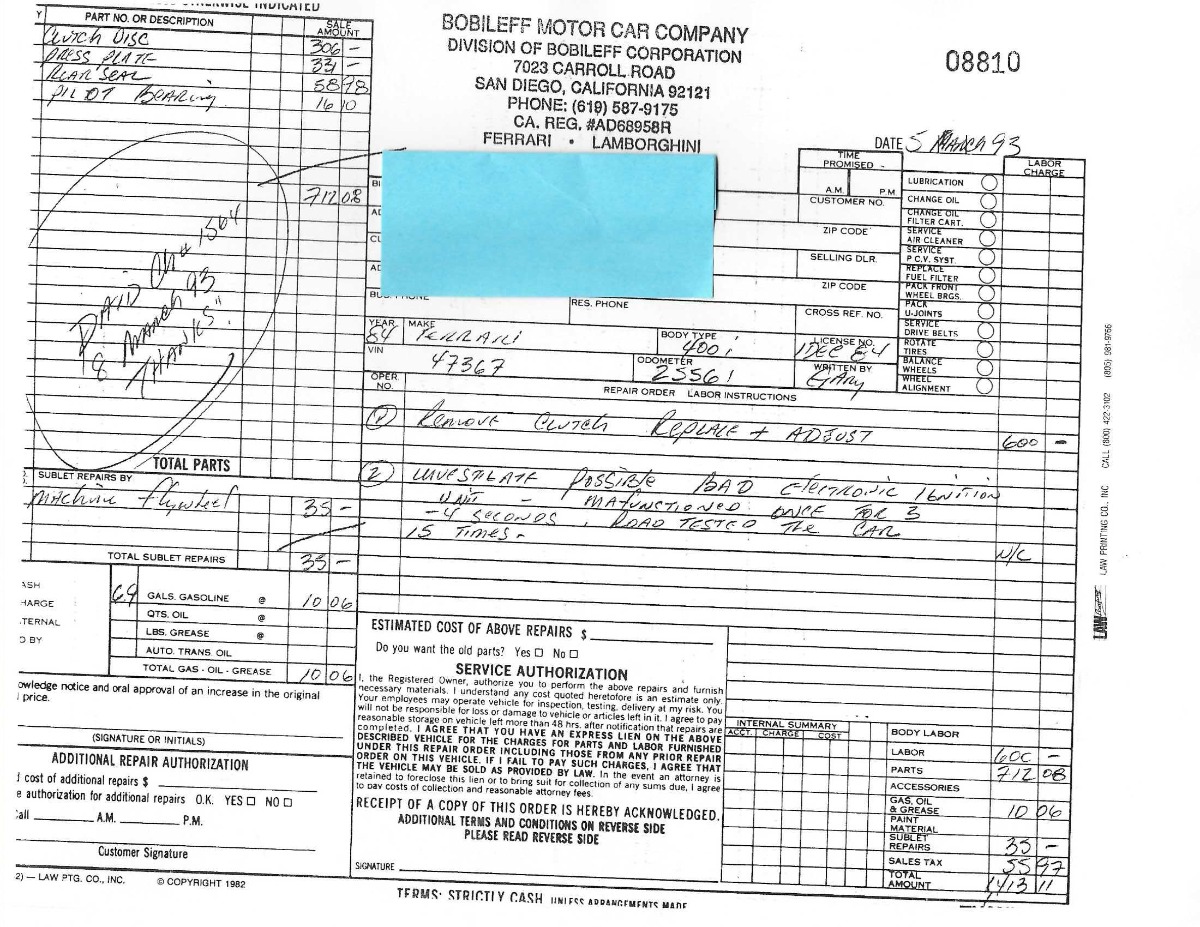 OTHERWISE INDICATED
Y PART NO. OR DESCRIPTION SALE AMOUNT
CLUTCH DISC 306 -
PRESS PLATE 331 -
REAR SEAL 58 98
PILOT BEARING 16 10
712 08
PAID CH# 1564
8 MARCH 93
THANKS"
TOTAL PARTS
SUBLET REPAIRS BY
MACHINE Flywheel 35 -
TOTAL SUBLET REPAIRS 35 -
ASH
HARGE
TERNAL
D BY
69 GALS. GASOLINE @ 10 06
QTS. OIL @
LBS. GREASE @
AUTO. TRANS. OIL
TOTAL GAS - OIL - GREASE 10 06
owledge notice and oral approval of an increase in the original
l price.
(SIGNATURE OR INITIALS)
ADDITIONAL REPAIR AUTHORIZATION
d cost of additional repairs $
e authorization for additional repairs O.K. YES □ NO □
Call A.M. P.M.
Customer Signature
2) — LAW PTG. CO., INC. © COPYRIGHT 1982
BOBILEFF MOTOR CAR COMPANY
DIVISION OF BOBILEFF CORPORATION
7023 CARROLL ROAD
SAN DIEGO, CALIFORNIA 92121
PHONE: (619) 587-9175
CA. REG. #AD68958R
FERRARI • LAMBORGHINI
08810
DATE 5 MARCH 93
BI
AD
CI
AD
BUS. PHONE
RES. PHONE
TIME PROMISED
A.M. P.M.
CUSTOMER NO.
ZIP CODE
SELLING DLR.
ZIP CODE
CROSS REF. NO.
LABOR CHARGE
LUBRICATION
CHANGE OIL
CHANGE OIL FILTER CART.
SERVICE AIR CLEANER
SERVICE P.C.V. SYST.
REPLACE FUEL FILTER
PACK FRONT WHEEL BRGS.
PACK U-JOINTS
SERVICE DRIVE BELTS
ROTATE TIRES
BALANCE WHEELS
WHEEL ALIGNMENT
YEAR 84 MAKE FERRARI BODY TYPE 400i LICENSE NO. 1DEC84
VIN 47367 ODOMETER 25561 WRITTEN BY GARY
OPER. NO. REPAIR ORDER LABOR INSTRUCTIONS
① REMOVE CLUTCH REPLACE + ADJUST 600 -
② INVESTIGATE POSSIBLE BAD ELECTRONIC IGNITION
UNIT - MALFUNCTIONED ONCE FOR 3
-4 SECONDS. ROAD TESTED THE CAR
15 TIMES - N/C
ESTIMATED COST OF ABOVE REPAIRS $
Do you want the old parts? Yes □ No □
SERVICE AUTHORIZATION
I, the Registered Owner, authorize you to perform the above repairs and furnish
necessary materials. I understand any cost quoted heretofore is an estimate only.
Your employees may operate vehicle for inspection, testing, delivery at my risk. You
will not be responsible for loss or damage to vehicle or articles left in it. I agree to pay
reasonable storage on vehicle left more than 48 hrs. after notification that repairs are
completed. I AGREE THAT YOU HAVE AN EXPRESS LIEN ON THE ABOVE
DESCRIBED VEHICLE FOR THE CHARGES FOR PARTS AND LABOR FURNISHED
UNDER THIS REPAIR ORDER INCLUDING THOSE FROM ANY PRIOR REPAIR
ORDER ON THIS VEHICLE. IF I FAIL TO PAY SUCH CHARGES, I AGREE THAT
THE VEHICLE MAY BE SOLD AS PROVIDED BY LAW. In the event an attorney is
retained to foreclose this lien or to bring suit for collection of any sums due, I agree
to pay costs of collection and reasonable attorney fees.
RECEIPT OF A COPY OF THIS ORDER IS HEREBY ACKNOWLEDGED.
ADDITIONAL TERMS AND CONDITIONS ON REVERSE SIDE
PLEASE READ REVERSE SIDE
SIGNATURE
TERMS: STRICTLY CASH UNLESS ARRANGEMENTS MADE
INTERNAL SUMMARY
ACCT. CHARGE COST
BODY LABOR
LABOR 600 -
PARTS 712 08
ACCESSORIES
GAS, OIL & GREASE 10 06
PAINT MATERIAL
SUBLET REPAIRS 35 -
SALES TAX 55 97
TOTAL AMOUNT 1413 11
LAW PRINTING CO., INC CALL (800) 422-3102 (805) 981-9766